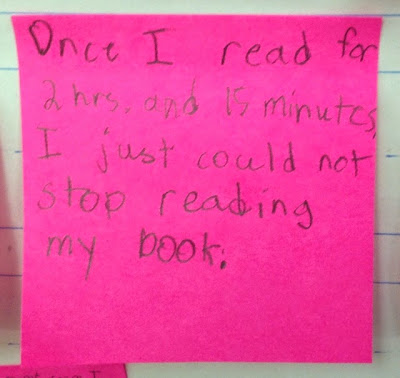 Once I read for
2 hrs. and 15 minutes.
I just could not
stop reading
my book.